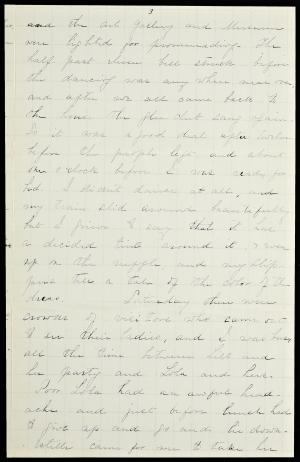 3
and the Art Gallery and Museum
were lighted for promenading. The
half past eleven bell struck before
the dancing was any where near over
and after we all came back to
the house the Glee club sang again.
So it was a good deal after twelve
before the people left and about
one o'clock before I was ready for
bed. I didn't dance at all, and
my train slid around beautifully
but I grieve to say that it had
a decided tint around it, even
up on the ruffle and my slips
gave the a tale of the color of the
dress. Saturday there were
crowds of visitors who came out
to see their ladies, and I was busy
all the time between
her party and Lola and hers.
Poor Lola had an awful head-
ache and just before lunch had
to give up and go and lie down.
came for me to take her